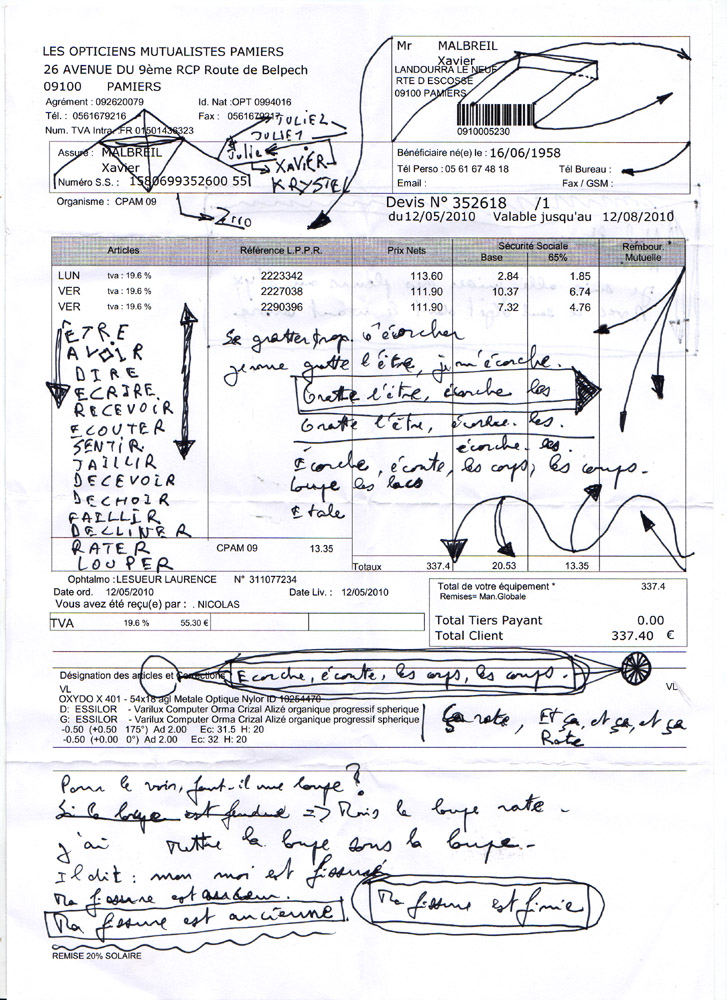 LES OPTICIENS MUTUALISTES PAMIERS
26 AVENUE DU 9ème RCP Route de Belpech
09100 PAMIERS
Agrément : 092620079 Id. Nat :OPT 0994016
Tél. : 0561679216 Fax : 0561679217
Num. TVA Intra. FR 01501433323
JULIEL
JULIET
Julie
XAVIER
KRYSTEL
Zéro
Assuré : MALBREIL
Xavier
Numéro S.S. : 1580699352600 55
Organisme : CPAM 09
Mr MALBREIL
Xavier
LANDOURRA LE NEUF
RTE D ESCOSSE
09100 PAMIERS
0910005230
Bénéficiaire né(e) le : 16/06/1958
Tél Perso : 05 61 67 48 18 Tél Bureau :
Email : Fax / GSM :
Devis N° 352618 /1
du12/05/2010 Valable jusqu'au 12/08/2010
Articles Référence L.P.P.R. Prix Nets Sécurité Sociale Rembour.
Base 65% Mutuelle
LUN tva : 19.6 % 2223342 113.60 2.84 1.85
VER tva : 19.6 % 2227038 111.90 10.37 6.74
VER tva : 19.6 % 2290396 111.90 7.32 4.76
ÊTRE
AVOIR
DIRE
ECRIRE
RECEVOIR
ECOUTER
SENTIR
JAILLIR
DECEVOIR
DECHOIR
FAILLIR
DECLINER
RATER
LOUPER
Se gratter trop. S'écorcher
je me gratte l'être, je m'écorche.
Gratte l'être, écorche les
Gratte l'être, écorche les.
écorche les.
Ecorche, écoute, les corps, les coups.
Loupe les lacs
Etale
CPAM 09 13.35
Totaux 337.4 20.53 13.35
Ophtalmo :LESUEUR LAURENCE N° 311077234
Date ord. 12/05/2010 Date Liv. : 12/05/2010
Vous avez été reçu(e) par : . NICOLAS
TVA 19.6 % 55.30 €
Total de votre équipement * 337.4
Remises= Man.Globale
Total Tiers Payant 0.00
Total Client 337.40 €
Désignation des articles et Corrections
Ecorche, écoute, les corps, les coups.
VL VL
OXYDO X 401 - 54x18 agl Metale Optique Nylor ID 10254470
D: ESSILOR - Varilux Computer Orma Crizal Alizé organique progressif spherique
G: ESSILOR - Varilux Computer Orma Crizal Alizé organique progressif spherique
-0.50 (+0.50 175°) Ad 2.00 Ec: 31.5 H: 20
-0.50 (+0.00 0°) Ad 2.00 Ec: 32 H: 20
Ça rate, Et ça, et ça, et ça
Rate
Pour le voir, faut-il une loupe ?
Si la loupe est fendue => Mais la loupe rate -
j'ai mettre la loupe sous la loupe -
Il dit : mon moi est fissuré
Ma fissure est
Ma fissure est ancienne.
Ma fissure est finie
REMISE 20% SOLAIRE